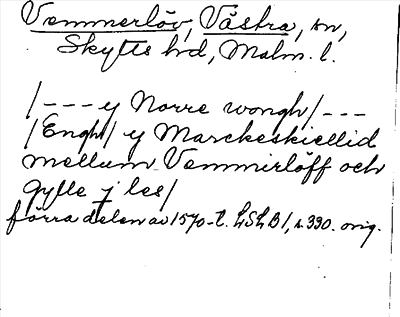 Vemmerlöv, Västra, sn,
Skytts hd, Malm. l.
/--- y Norre wongh/---
/Enght/ y Marckeskiellid
mellum Vemmirlöff och
Gylle j les/
förra delen av 1570-t. LSLB1, s. 330. orig.